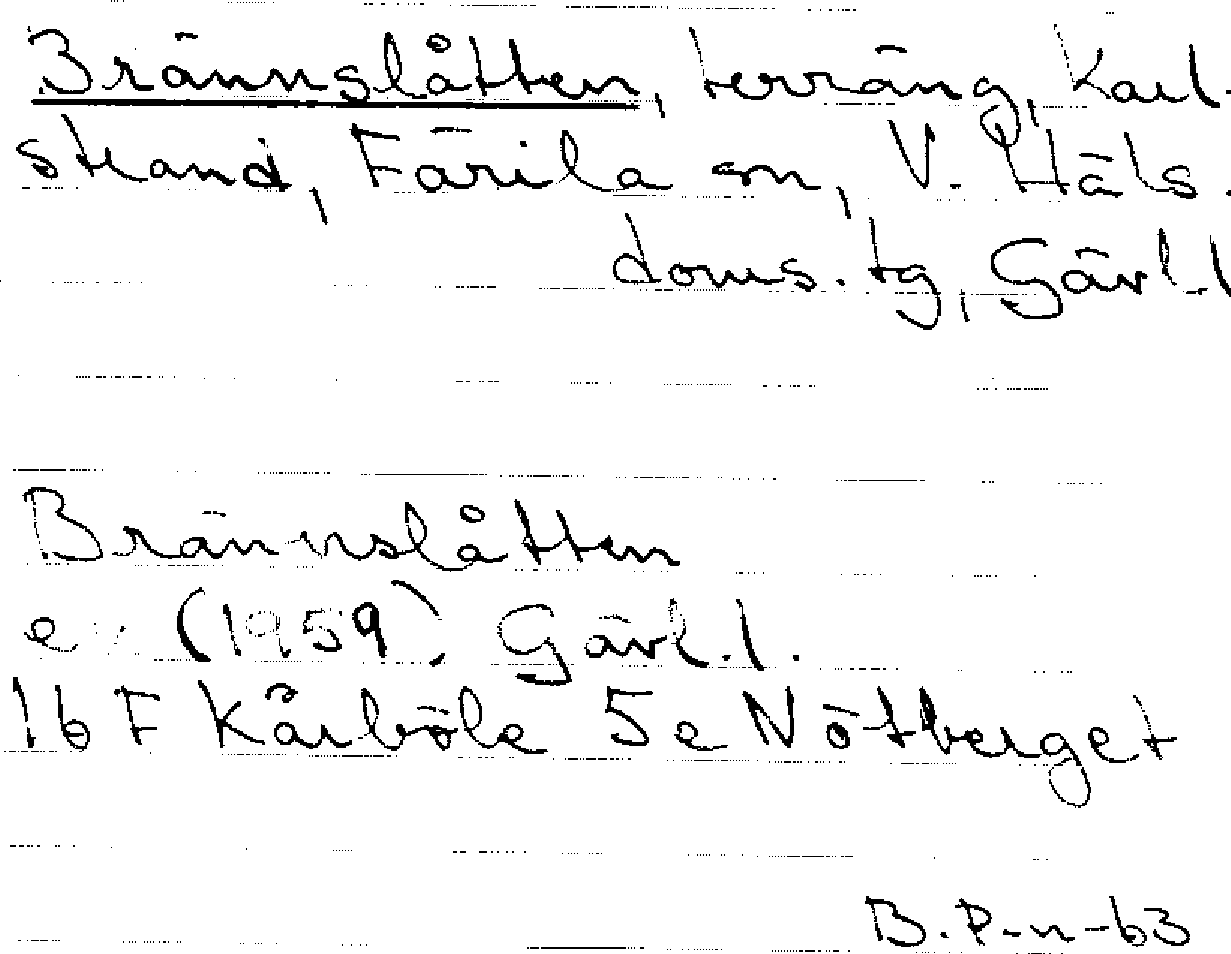 Brännslåtten, terräng, Karl-
strand, Färila sn, V. Häls.
doms. tg, Gävl. l
Brännslåtten
e (1959) Gävl. l.
16 F Kårböle 5e Nötberget
B. P-n-63